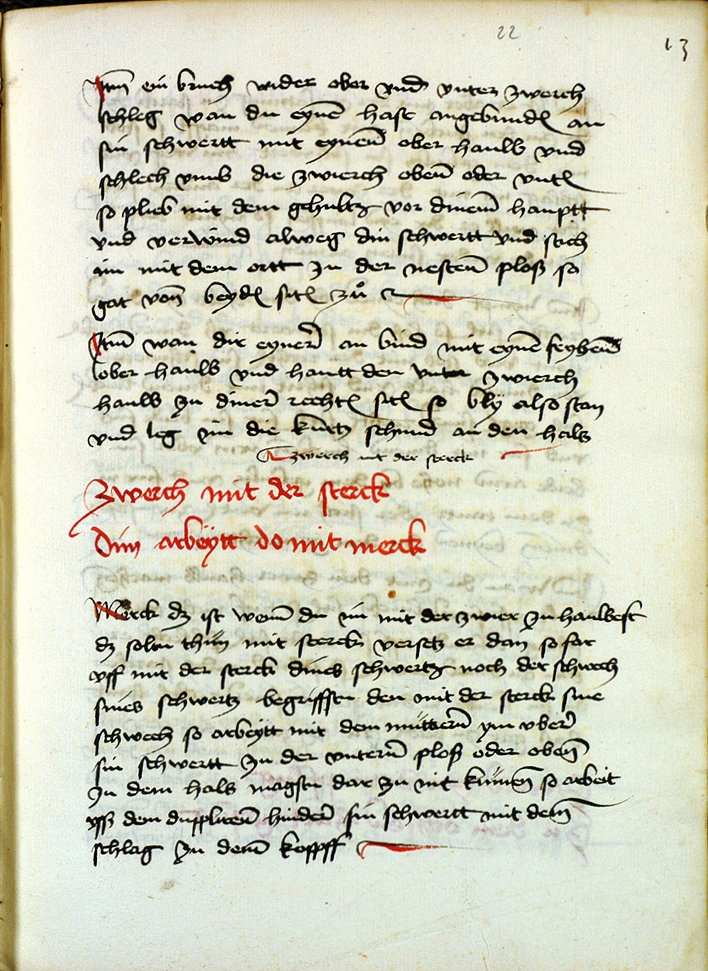 22
13
Itm ein bruch wider ober vnd vnter zwerch
schleg wan du eynē hast angebundē an
sin schwertt mit eynem ober hauw vnd
schlech vmb die zwierch oben oder vntē
so plib mit dem gehultz vor dinem hauptt
vnd verwind alweg din schwertt vnd stich
im mit dem ortt zu der nesten ploß so
gat von beydē sitē zů
Itm wan dir eyner an bind mit eynē
ober hauw vnd hautt den vnter zwierch
hauw zu diner rechtē sitē so bly also stan
vnd leg im die kurtz schnid an den hals
zwerch mit der sterck
Zwerch mit der sterck
Dim arbeytt do mit merck
Merck dz ist wenn du im mit der zwier zu hauwest
dz soltu thun mit sterck versetz er dan so far
vff mit der sterck dines schwertz noch der schwech
sines schwertz begriffstu den mit der sterck sine
schwech so arbeytt mit dem mutiern ym vber
sin schwertt zu der vntern ploß oder oben
zu dem hals magstu dar zu nit kumen so arbeit
vß dem dupplieren hinder sin schwertt mit dem
schlag zu dem kopff